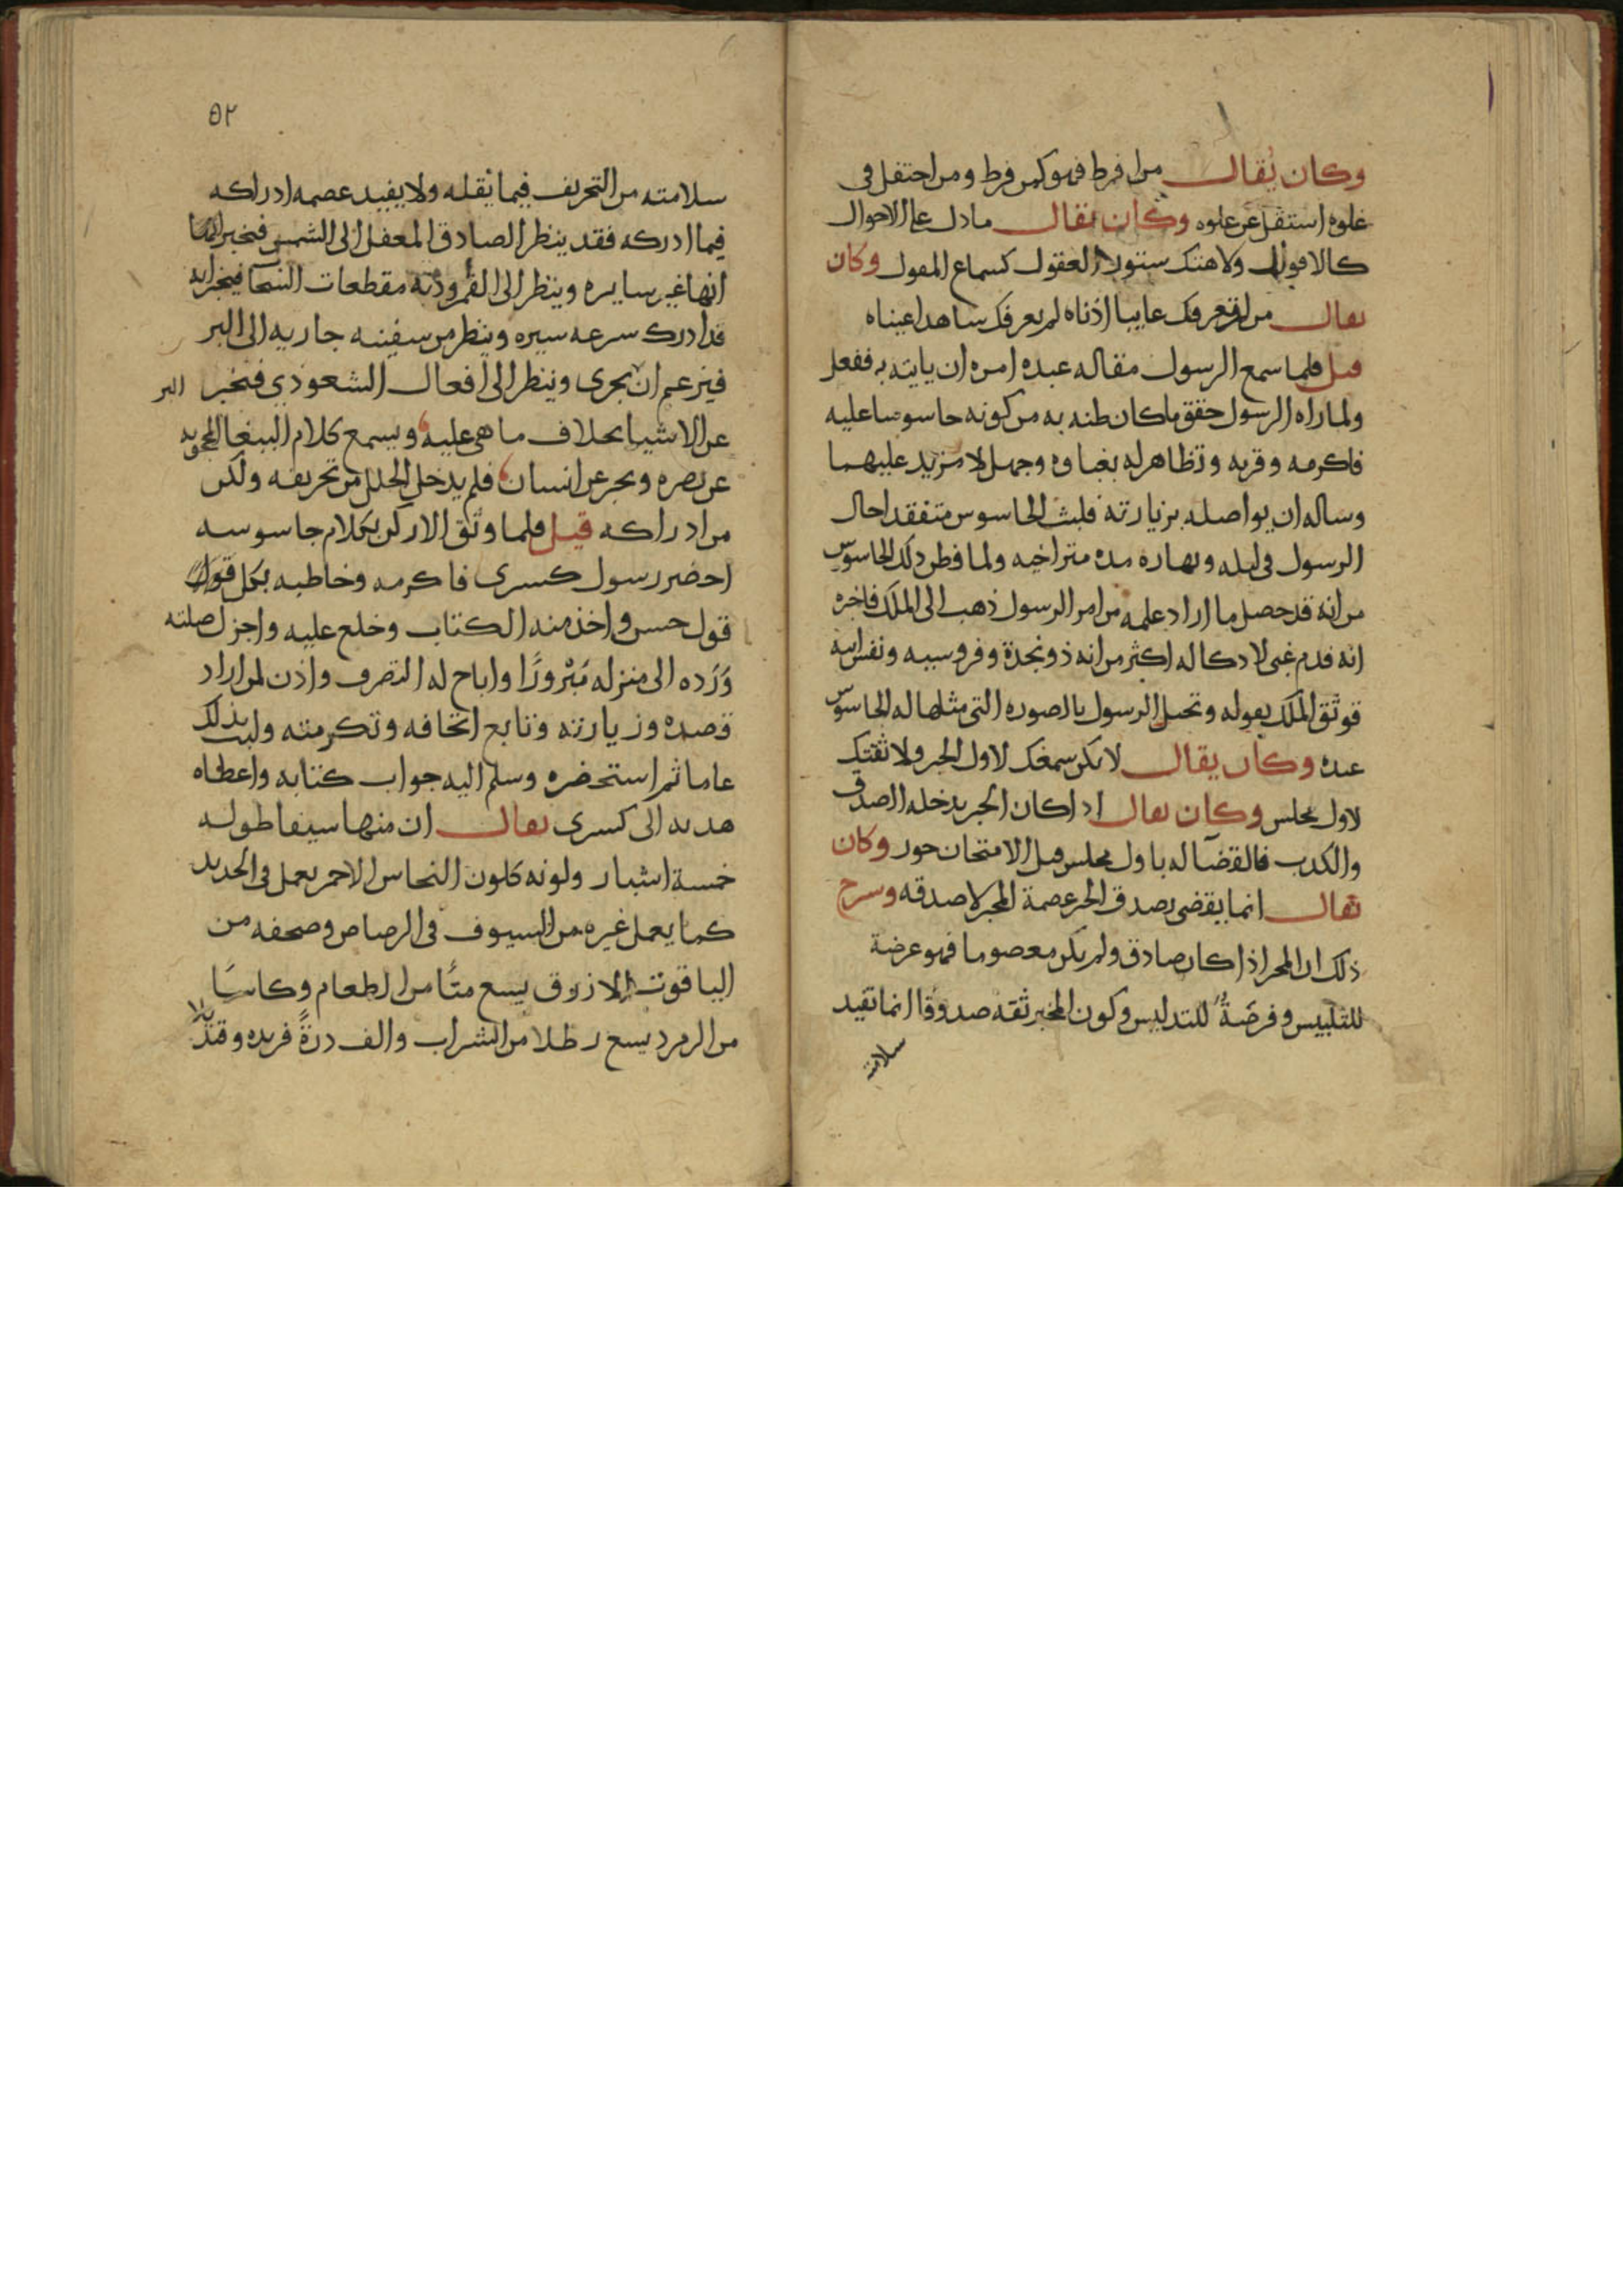 وكان يقال من افرط فهو كمن فرط ومن احتفل في
علوه استقل عن علوه وكان يقال ما دل على الاحوال
كالاقوال ولا هتك ستور العقول كسماع المقول وكان
يقال من لم تعرفك غايبا اذناه لم يعرفك شاهدا عيناه
قيل فلما سمع الرسول مقاله عبده امره ان ياتيه به ففعل
ولما راه الرسول حقق ما كان ظنه به من كونه جاسوسا عليه
فاكرمه وقربه وتظاهر له بغباوه وجهل لا مزيد عليهما
وساله ان يواصله بزيارته فلبث الجاسوس متفقدا حال
الرسول في ليله ونهاره مده متراخيه ولما فطن ذلك الجاسوس
من انه قد حصل ما اراد علمه من امر الرسول ذهب الى الملك فاخبره
انه فدم غبي لا ذكا له اكثر من انه ذو نجدة وفروسيه ونفس ابيه
فوثق الملك بقوله وتخيل الرسول بالصوره التي مثلها له الجاسوس
عنده وكان يقال لا يكن سمعك لاول الخبر ولا ثقتك
لاول مجلس وكان يقال اذا كان الخبر يدخله الصدق
والكذب فالقضا له باول مجلس قبل الامتحان جور وكان
يقال انما يقضي بصدق الخبر عصمة المخبر لا صدقه وشرح
ذلك ان المخبر اذا كان صادق ولم يكن معصوما فهو عرضة
للتلبيس وفرضة للتدليس وكون المخبر ثقه صدوقا انما تفيد
سلامته
٥٢
سلامته من التحريف فيما نقله ولا يفيد عصمه ادراكه
فيما ادركه فقد ينظر الصادق المغفل الى الشمس فيخبر
انها غير سايره وينظر الى القمر ودنه مقطعات السحاب فيخبر انه
قد ادرك سرعه سيره وينظر من سفينه جاريه الى البر
فيزعم ان يجري وينظر الى افعال الشعوذي فيخبر
البر
عن الاشيا بخلاف ما هي عليه ويسمع كلام الببغا المحجوبه
عن بصره ويخبر عن انسان فلم يدخل الخلل من تحريفه ولكن
من ادراكه قيل فلما وثق الاركن بكلام جاسوسه
احضر رسول كسرى فاكرمه وخاطبه بكل
قول حسن واخذ منه الكتاب وخلع عليه واجزل صلته
ورده الى منزله مبرورا واباح له التصرف واذن لمن اراد
قصده وزيارته وتابع اتحافه وتكرمته ولبث بذلك
عاما ثم استحضره وسلم اليه جواب كتابه واعطاه
هديه الى كسرى يقال ان منها سيفا طوله
خمسة اشبار ولونه كلون النحاس الاحمر يعمل في الحديد
كما يعمل غيره من السيوف في الرصاص وصحفه من
الياقوت الازرق يسع منا من الطعام وكاسا
من الزمرد يسع رطلا من الشراب والف درة فريده وقنديلا